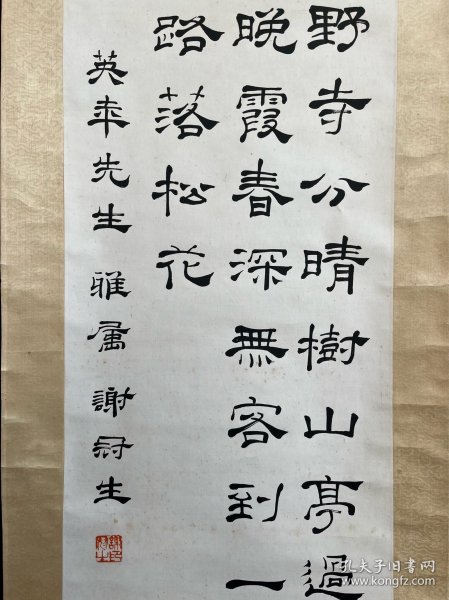 野寺分晴樹山亭過
晚霞春深無客到一
路落松花
英年先生 雅属 謝冠生
孔夫子旧书网
kongfz.com